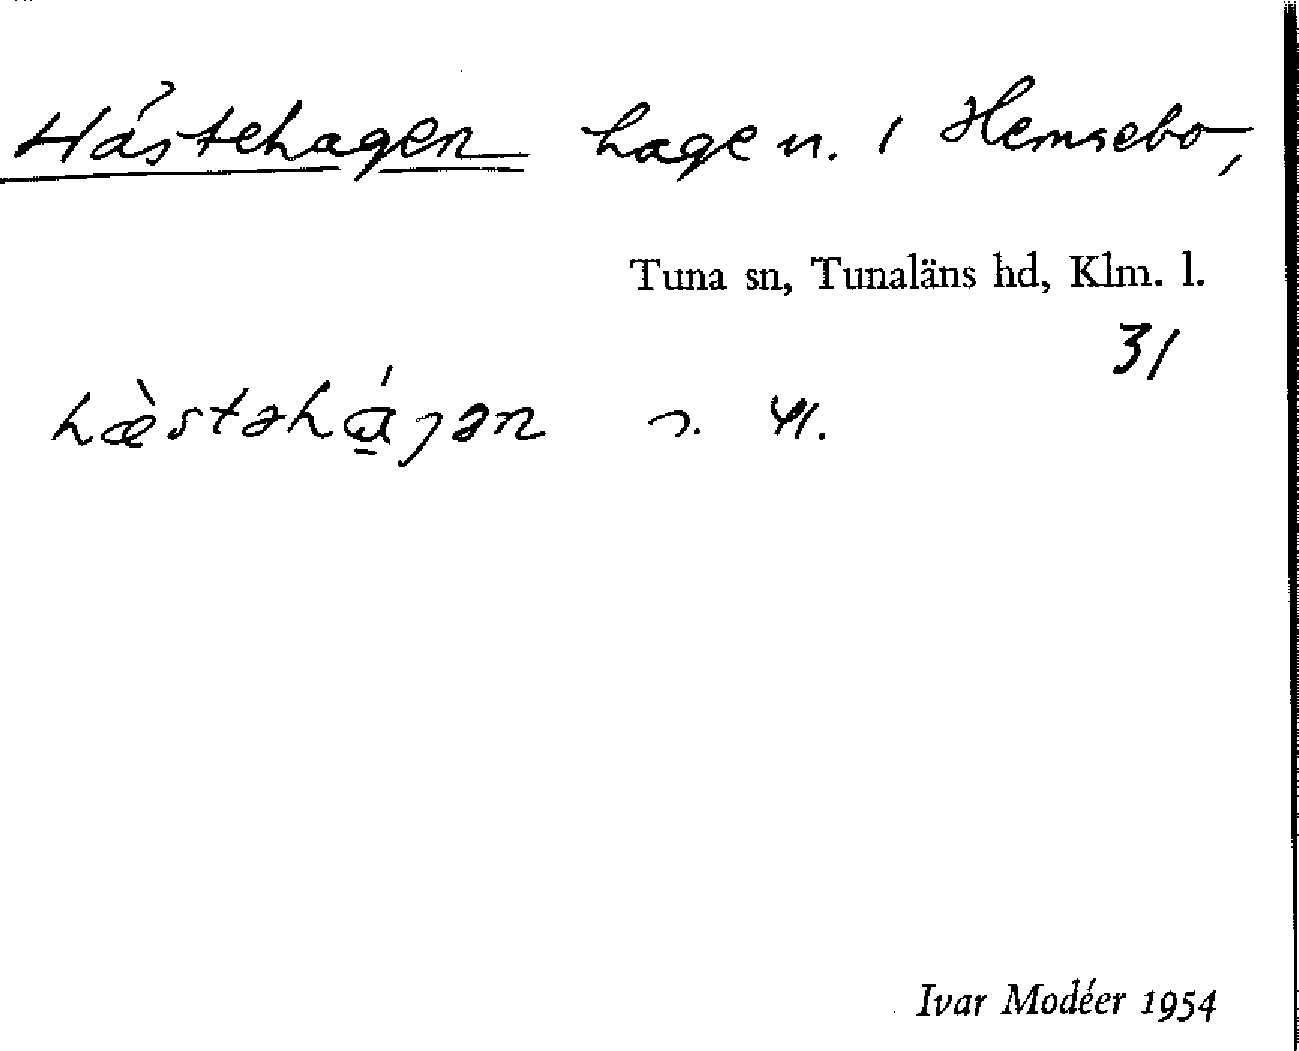 Hästehagen hage n. i Hemsebo,
Tuna sn, Tunaläns hd, Klm. l.
31
hæ̀stəhá̱gən
Ivar Modéer 1954